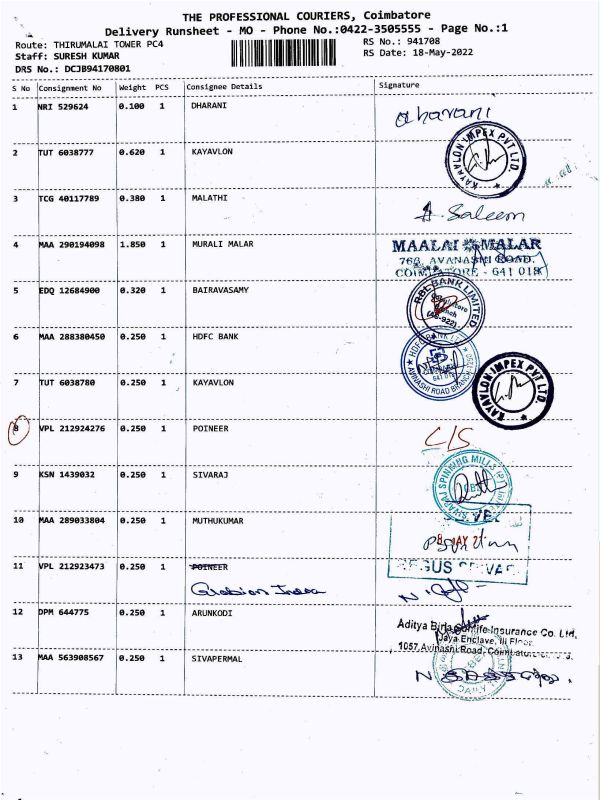 THE PROFESSIONAL COURIERS, Coimbatore
Delivery Runsheet - MO - Phone No.:0422-3505555 - Page No.:1
Route: THIRUMALAI TOWER PC4 RS No.: 941708
Staff: SURESH KUMAR RS Date: 18-May-2022
DRS No.: DCJB94170801
S No Consignment No Weight PCS Consignee Details Signature
1 NRI 529624 0.100 1 DHARANI Dharani
2 TUT 6038777 0.620 1 KAYAVLON KAYAVLON IMPEX PVT LTD.
3 TCG 40117789 0.380 1 MALATHI A. Saleem
4 MAA 290194098 1.850 1 MURALI MALAR MAALAI MALAR
766, AVANASHI ROAD,
COIMBATORE - 641 018
5 EDQ 12684900 0.320 1 BAIRAVASAMY RBL BANK LIMITED
6 MAA 288380450 0.250 1 HDFC BANK HDFC BANK
AVINASHI ROAD BRANCH
7 TUT 6038780 0.250 1 KAYAVLON KAYAVLON IMPEX PVT LTD.
8 VPL 212924276 0.250 1 POINEER C/S
9 KSN 1439032 0.250 1 SIVARAJ SPINNING MILLS
10 MAA 289033804 0.250 1 MUTHUKUMAR
11 VPL 212923473 0.250 1 POINEER
12 DPM 644775 0.250 1 ARUNKODI Aditya Birla Sunlife Insurance Co. Ltd,
Jaya Enclave, III Floor,
1057, Avinashi Road,
13 MAA 563908567 0.250 1 SIVAPERMAL